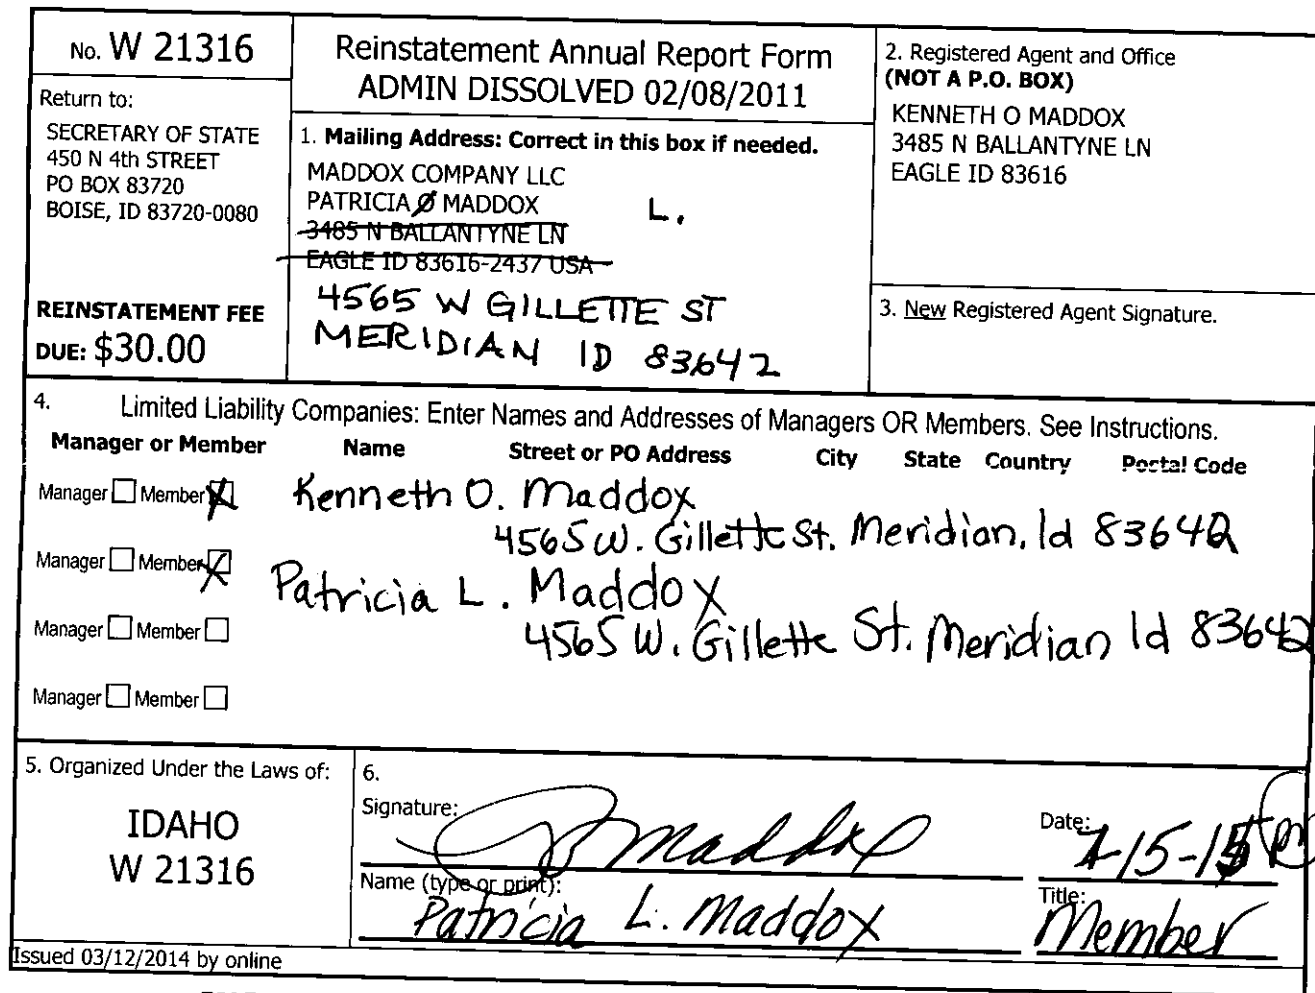 No. W 21316
Return to:
SECRETARY OF STATE
450 N 4th STREET
PO BOX 83720
BOISE, ID 83720-0080
REINSTATEMENT FEE
DUE: $30.00
Reinstatement Annual Report Form
ADMIN DISSOLVED 02/08/2011
1. Mailing Address: Correct in this box if needed.
MADDOX COMPANY LLC
PATRICIA O MADDOX L.
3485 N BALLANTYNE LN
EAGLE ID 83616-2437 USA
4565 W GILLETTE ST
MERIDIAN ID 83642
2. Registered Agent and Office
(NOT A P.O. BOX)
KENNETH O MADDOX
3485 N BALLANTYNE LN
EAGLE ID 83616
3. New Registered Agent Signature.
4. Limited Liability Companies: Enter Names and Addresses of Managers OR Members. See Instructions.
Manager or Member Name Street or PO Address City State Country Postal Code
Manager Member Kenneth O. Maddox
4565 W. Gillette St. Meridian, Id 83642
Manager Member Patricia L. Maddox
4565 W. Gillette St. Meridian Id 83642
Manager Member
Manager Member
5. Organized Under the Laws of:
IDAHO
W 21316
6.
Signature: Maddox
Date: -15-15
Name (type or print): Patricia L. Maddox
Title: Member
Issued 03/12/2014 by online